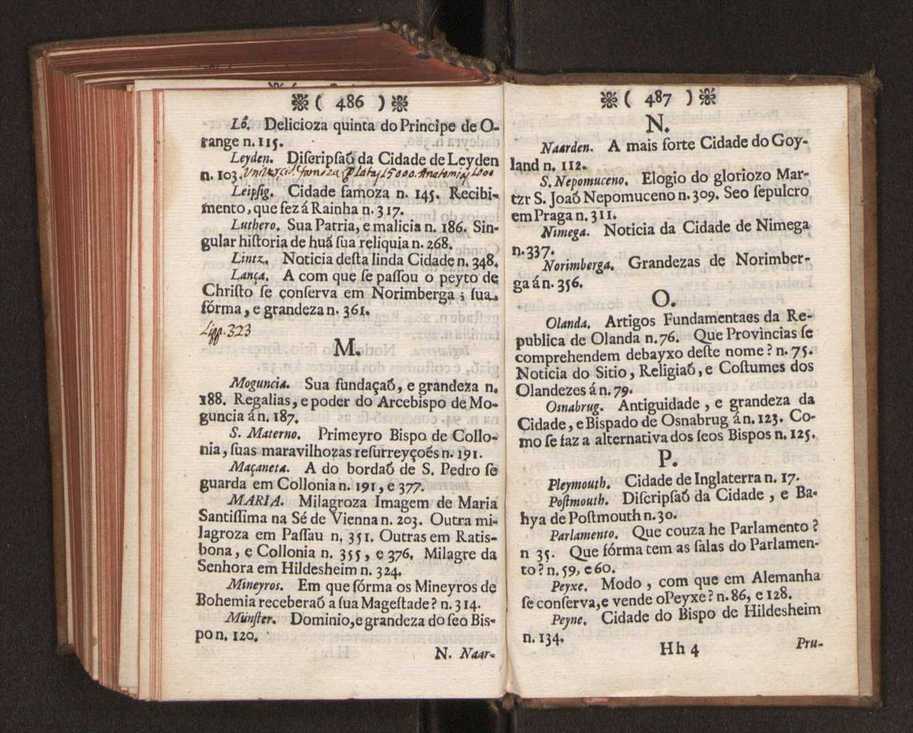 ( 486 )
Lô. Delicioza quinta do Principe de O-
range n. 115.
Leyden. Diſcripſaõ da Cidade de Leyden
n. 103.
Leipſig. Cidade famoza n. 145. Recibi-
mento, que fez á Rainha n. 317.
Luthero. Sua Patria, e malicia n. 186. Sin-
gular hiſtoria de huã ſua reliquia n. 268.
Lintz. Noticia deſta linda Cidade n. 348.
Lança. A com que ſe paſſou o peyto de
Chriſto ſe conſerva em Norimberga ; ſua
fórma, e grandeza n. 361.
Lipp. 323
M.
Moguncia. Sua fundaçaõ, e grandeza n.
188. Regalias, e poder do Arcebiſpo de Mo-
guncia á n. 187.
S. Materno. Primeyro Biſpo de Collo-
nia, ſuas maravilhozas reſurreyçoẽs n. 191.
Maçaneta. A do bordaõ de S. Pedro ſe
guarda em Collonia n. 191, e 377.
MARIA. Milagroza Imagem de Maria
Santiſſima na Sé de Vienna n. 203. Outra mi-
lagroza em Paſſau n. 351. Outras em Ratis-
bona, e Collonia n. 355, e 376. Milagre da
Senhora em Hildesheim n. 324.
Mineyros. Em que fórma os Mineyros de
Bohemia receberaõ a ſua Mageſtade? n. 314.
Munſter. Dominio, e grandeza do ſeo Biſ-
po n. 120.
N. Naar-
( 487 )
N.
Naarden. A mais forte Cidade do Goy-
land n. 112.
S. Nepomuceno. Elogio do gloriozo Mar-
tzr S. Joaõ Nepomuceno n. 309. Seo ſepulcro
em Praga n. 311.
Nimega. Noticia da Cidade de Nimega
n. 337.
Norimberga. Grandezas de Norimber-
ga á n. 356.
O.
Olanda. Artigos Fundamentaes da Re-
publica de Olanda n. 76. Que Provincias ſe
comprehendem debayxo deſte nome? n. 75.
Noticia do Sitio, Religiaõ, e Coſtumes dos
Olandezes á n. 79.
Osnabrug. Antiguidade, e grandeza da
Cidade, e Biſpado de Osnabrug á n. 123. Co-
mo ſe faz a alternativa dos ſeos Biſpos n. 125.
P.
Pleymouth. Cidade de Inglaterra n. 17.
Poſtmouth. Diſcripſaõ da Cidade, e Ba-
hya de Poſtmouth n. 30.
Parlamento. Que couza he Parlamento?
n 35. Que fórma tem as ſalas do Parlamen-
to? n. 59, e 60.
Peyxe. Modo, com que em Alemanha
ſe conſerva, e vende o Peyxe? n. 86, e 128.
Peyne. Cidade do Biſpo de Hildesheim
n. 134.
Hh 4
Pru-